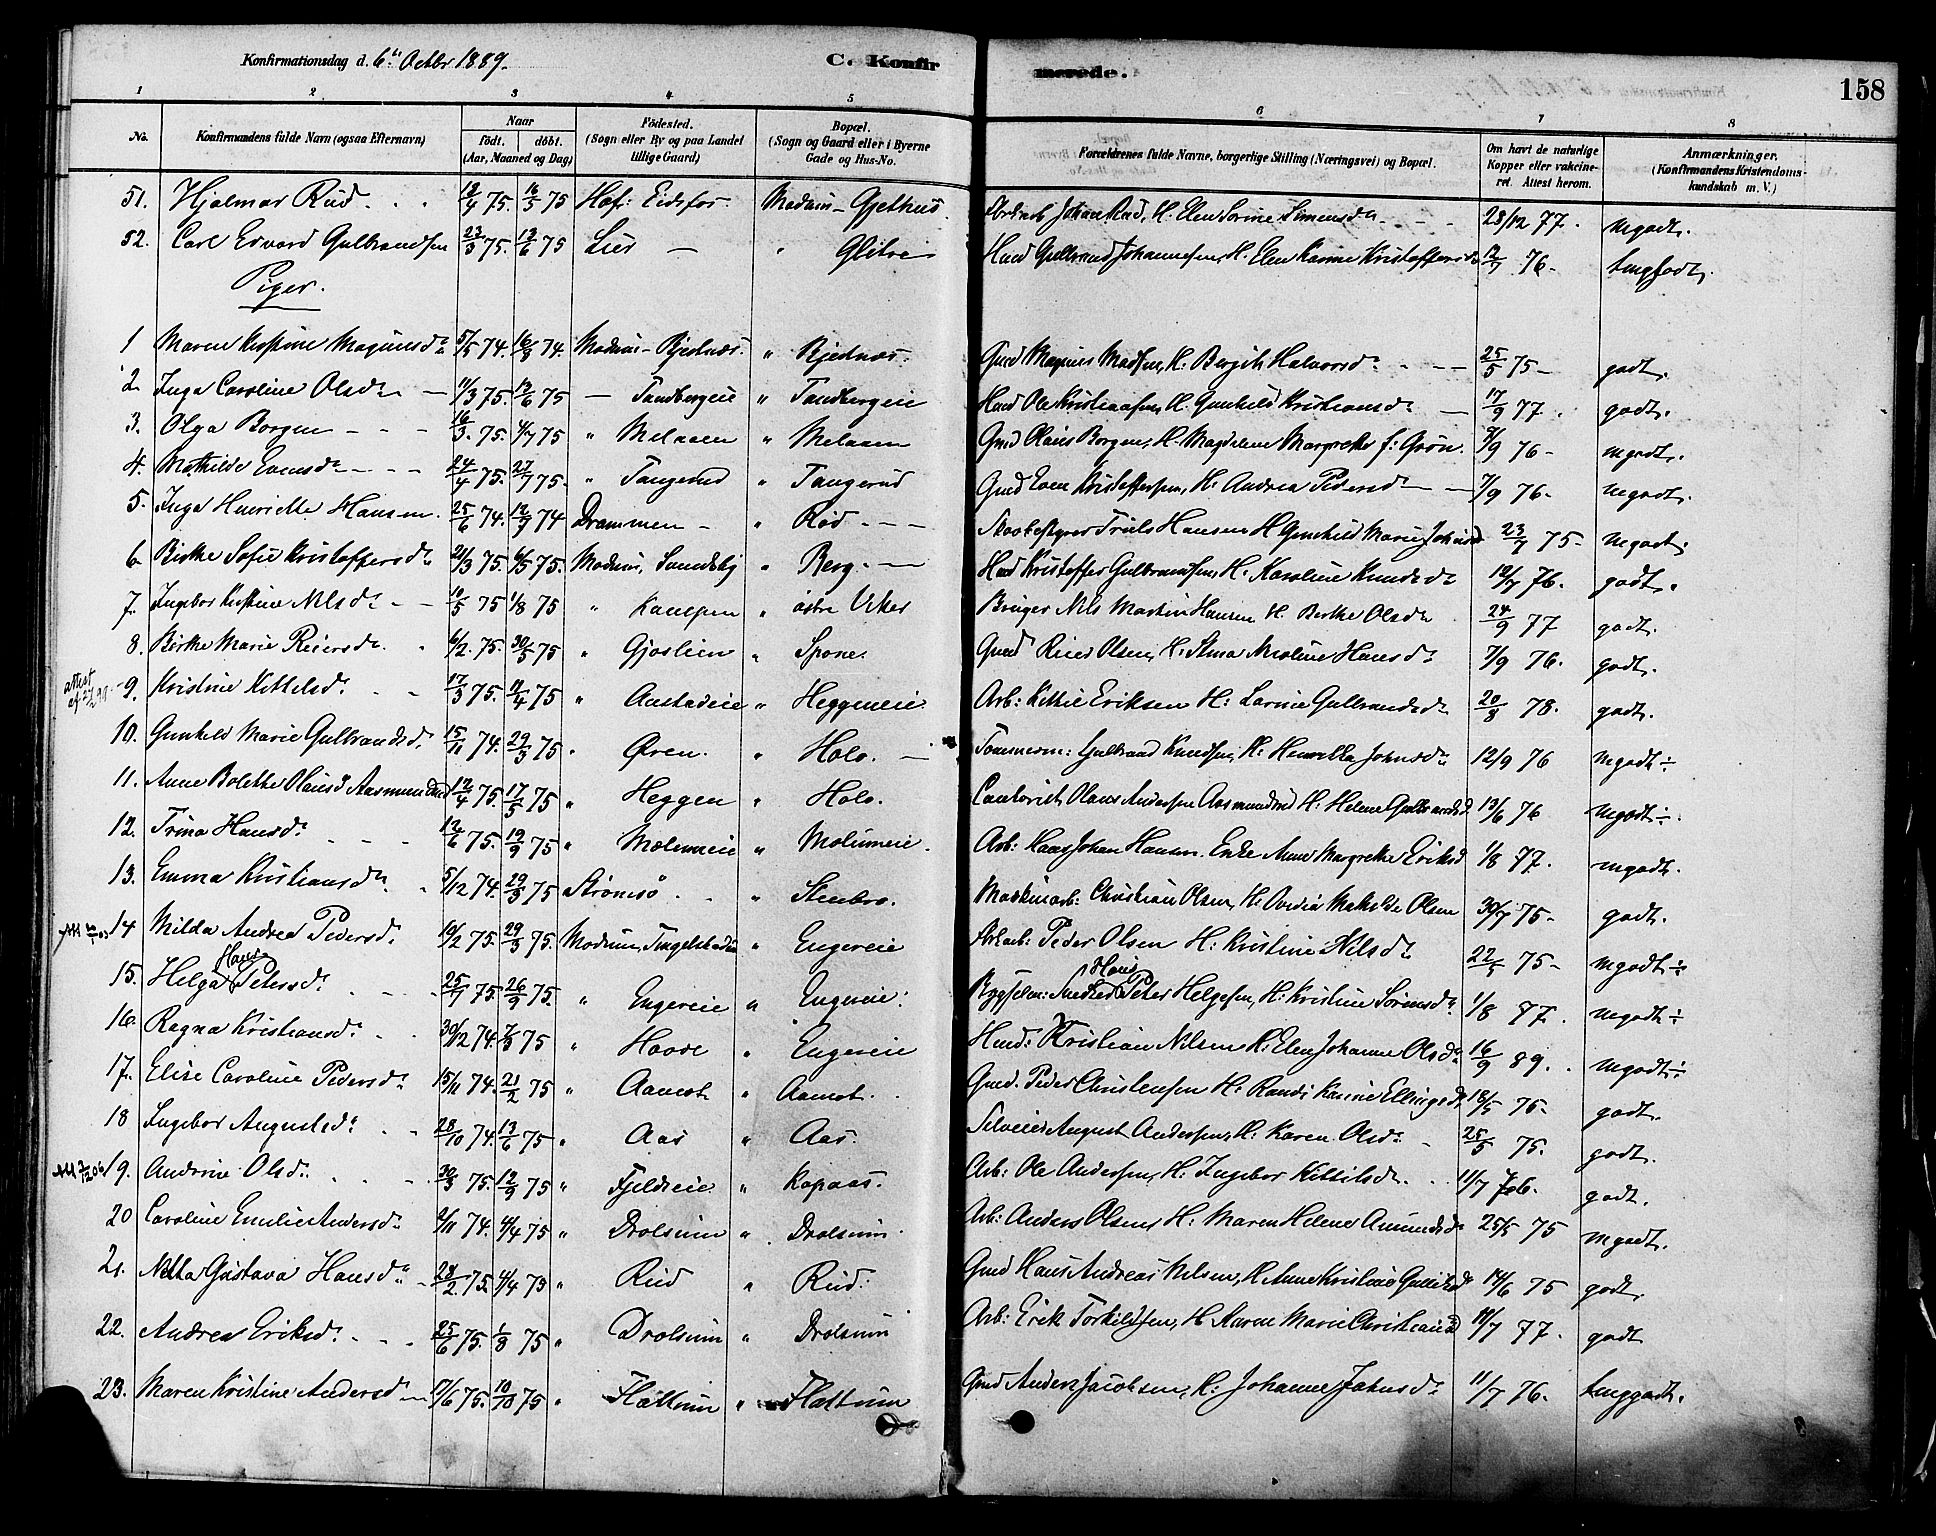 Konfirmationsdag d. 6te Octbr 1889. C. Konfirmerede. 158
1 2 3 4 5 6 7 8
No. Konfirmandens fulde Navn (ogsaa Efternavn) Naar født. døbt. (Aar, Maaned og Dag) Fødested. (Sogn eller By og paa Landet tillige Gaard) Bopæl. (Sogn og Gaard eller i Byerne Gade og Hus-No. Forældrenes fulde Navne, borgerlige Stilling (Næringsvei) og Bopæl. Om havt de naturlige Kopper eller vakcineret. Attest herom. Anmærkninger. (Konfirmandens Kristendomskundskab m. V.)
51. Hjalmar Rud 75. 75 Eidsfos Modum - Gjethus Johan Rud, H. Elen Sorine Simensdr 28/12 77. mgodt.
52. Carl Edvard Gulbrandsen 23/3 75. 13/6 75 Lier " Glitre Gulbrand Johannesen, H. Elen Karine Kristoffersdr 12/7 76. temgodt.
Piger.
1 Maren Kirstine Magnusdr 5/5 74. 16/8 74. Modum - Bjertnæs. " Bjertnæs. Gmd Magnus Madsen, H. Bergith Halvorsdr 25/5 75 godt.
2. Inga Caroline Olsdr 11/3 75. 13/6 75 Tandbergeie " Tandbergeie Hmd Ole Kristiansen, H. Gunhild Kristiansdr 17/9 77. godt.
3. Olga Borgen 16/3. 75. 4/7 75 " Melaaen " Melaaen Gmd Olaus Borgen, H. Magdelene Margrethe f: Grøn. 7/9 76 mgodt.
4. Mathilde Evensdr 24/4 75. 27/7 75. " Tangerud " Tangerud Gmd Even Kristoffersen, H. Andrea Pedersdr 7/9 76. mgodt.
5. Inga Henriette Hansen. 25/6 74. 12/9 74 Drammen " Rød Truls Hansen H Gunhild Marie 23/7 75 mgodt.
6 Birthe Sofie Kristoffersdr 21/3 75. 6/5 75. Modum, Sundsby " Berg. Hmd Kristoffer Gulbrandsen, H. Karoline Knudsdr 12/7 76. godt.
7. Ingebor Kirstine Nilsdr 10/5 75 1/8 75 " Kampen " østre Viker Bruger Nils Martin Hansen H. Berthe Olsdr 24/9 77 godt.
8. Birthe Marie Reiersdr 6/2. 75. 30/5 75 " Gjøslien " Spone. Gmd Reier Olsen, H. Moline Hansdr 7/9 76. godt.
attest
9. Kristine Kittelsdr 17/3 75. 11/4 75 " Aastadeie " Heggeneie Arb: Kittil Eriksen H: Larine Gulbrandsdr 20/8 78. godt.
10. Gunhild Marie Gulbrandsdr 15/11 74. 29/3 75 " Øren. " Holo. Tømmerm: Gulbrand Knudsen, H: Johnsdr 12/9 76 mgodt÷
11. Anne Bolette Olausd Aasmundrud 12/4 75. 17/5 75 " Heggen " Holo. Olaus Andersen Aasmundrud H. Helene Gulbrandsd 13/6 76 mgodt÷
12. Trina Hansdr 12/6 75. 19/9 75 " Mælumeie " Mælumeie. Arb: Hans Johan Hansen. Enke Anne Margrethe Eriksd 1/8 77. mgodt.
13. Emma Kristiansdr 5/12 74. 29/3 75 Strømsø. " Stenbro. Maskinarb: Christian Olsen, H: Ovedia Mathilde Olsen 30/7 75 godt.
14 Milda Andrea Pedersdr 10/2 75. 29/3 75. Modum, " Engereie Peder Olsen H: Kristine Nilsdr 22/5 75 mgodt÷
15. Helga Hansine Petersdr 25/7 75. 26/9 75. " Engereie " Engereie. Peter Helgesen, H: Kristine Sørensdr 1/8 77. mgodt÷
16. Ragna Kristiansdr 30/12 74. 7/3 75 " Hovde " Engereie Hmd: Kristian Nilsen H: Elen Johanne Olsdr 16/9 89. mgodt÷
17. Elise Caroline Pedersdr 15/11 74. 21/2 75 " Aamot " Aamot. Gmd. Peder Christensen H: Randi Karine Ellingsdr 18/5 76. godt.
18 Ingebor Augustsdr 28/10 74. 13/6 75 " Aas " Aas. Selveier August Andersen, H: Karen Olsdr 25/5 75. godt.
19. Andrine Olsdr 30/3 75. 12/9 75 " Fjeldreie. " Kopaas. Arb: Ole Andersen, H. Ingebor Kittilsdr 11/7 76. godt.
20 Caroline Emilie Andersdr 2/11 74. 4/4 75 " Drolsum " Drolsum. Arb: Anders Olsen H: Maren Helene Amundsdr 25/5 75 mgodt.
21. Netta Gustava Hansdr 28/2. 75 4/4 75 " Rud " Rud. Gmd Hans Andreas Nilsen, H. Anne Kristine 14/6 75 godt.
22. Andrea Eriksdr 25/6 75. 1/8 75 " Drolsum " Drolsum Arb: Erik Torkildsen, H. Karen Marie Christiansd 11/7 77. godt
23. Maren Kristine Andersdr 17/6 75. 10/10 75 " Flattum " Flattum Gmd Anders Jacobsen, H: Johanne Johnsdr 11/7 76. temggodt.